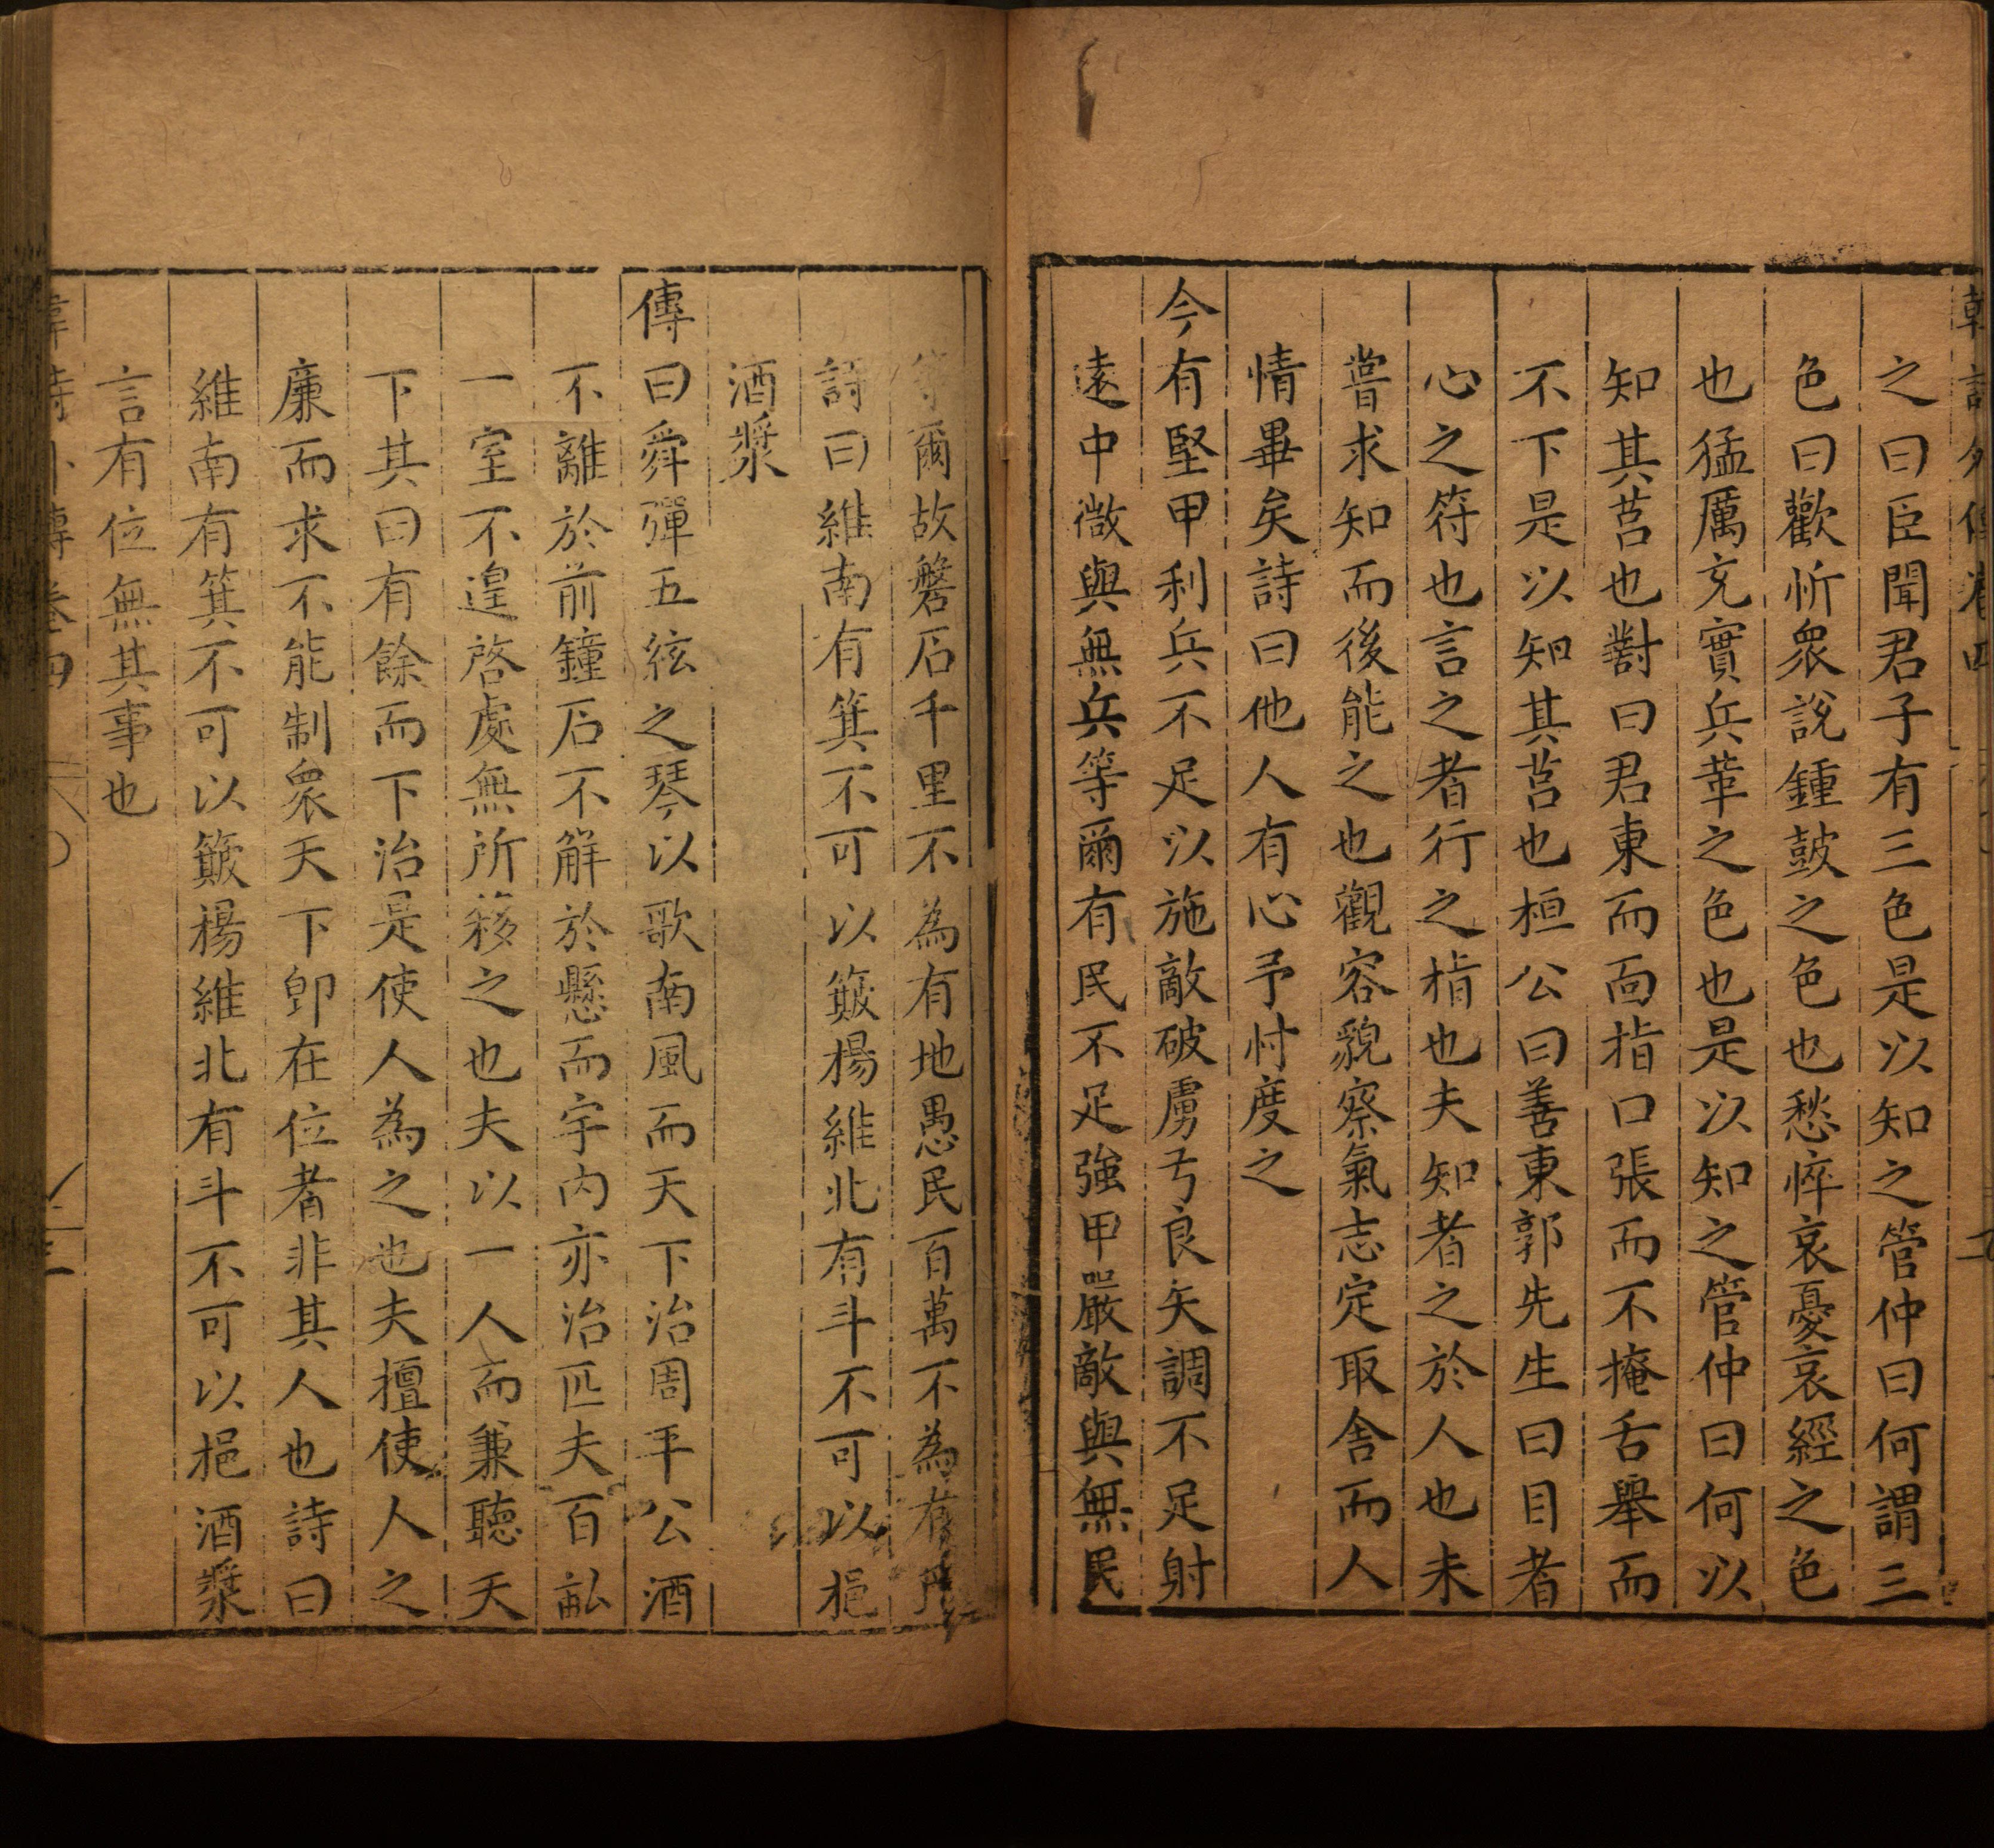 之曰臣聞君子有三色是以知之管仲曰何謂三
色曰歡忻眾說鍾鼓之色也愁悴哀憂哀絰之色
也猛厲充實兵革之色也是以知之管仲曰何以
知其莒也對曰君東而面指口張而不掩舌舉而
不下是以知其莒也桓公曰善東郭先生曰目者
心之符也言之者行之㫖也夫知者之於人也未
嘗求知而後能之也觀容貌察氣志定取舍而人
情畢矣詩曰他人有心予忖度之
今有堅甲利兵不足以施敵破虜弓良矢調不足射
遠中微與無兵等爾有民不足強甲嚴敵與無民
等爾故磐石千里不為有地愚民百萬不為有民
詩曰維南有箕不可以簸楊維北有斗不可以挹
酒漿
傳曰舜彈五絃之琴以歌南風而天下治周平公酒
不離於前鐘石不解於懸而宇内亦治匹夫百畝
一室不遑啓處無所移之也夫以一人而兼聽天
下其曰有餘而下治是使人為之也夫擅使人之
廉而求不能制眾天下卽在位者非其人也詩曰
維南有箕不可以簸楊維北有斗不可以挹酒漿
言有位無其事也
韓詩外傳卷四